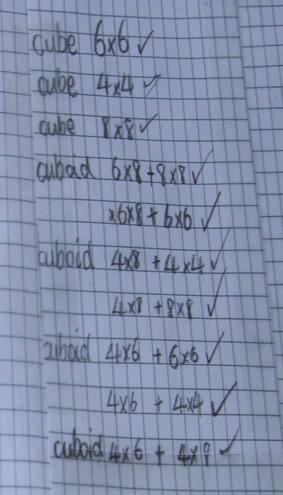 cube 6x6 ✓
cube 4x4 ✓
cube 8x8 ✓
cuboid 6x8 + 8x8 ✓
x6x8 + 6x6 ✓
cuboid 4x8 + 4x4 ✓
4x8 + 8x8 ✓
cuboid 4x6 + 6x6 ✓
4x6 + 4x4 ✓
cuboid 4x6 + 4x8 ✓